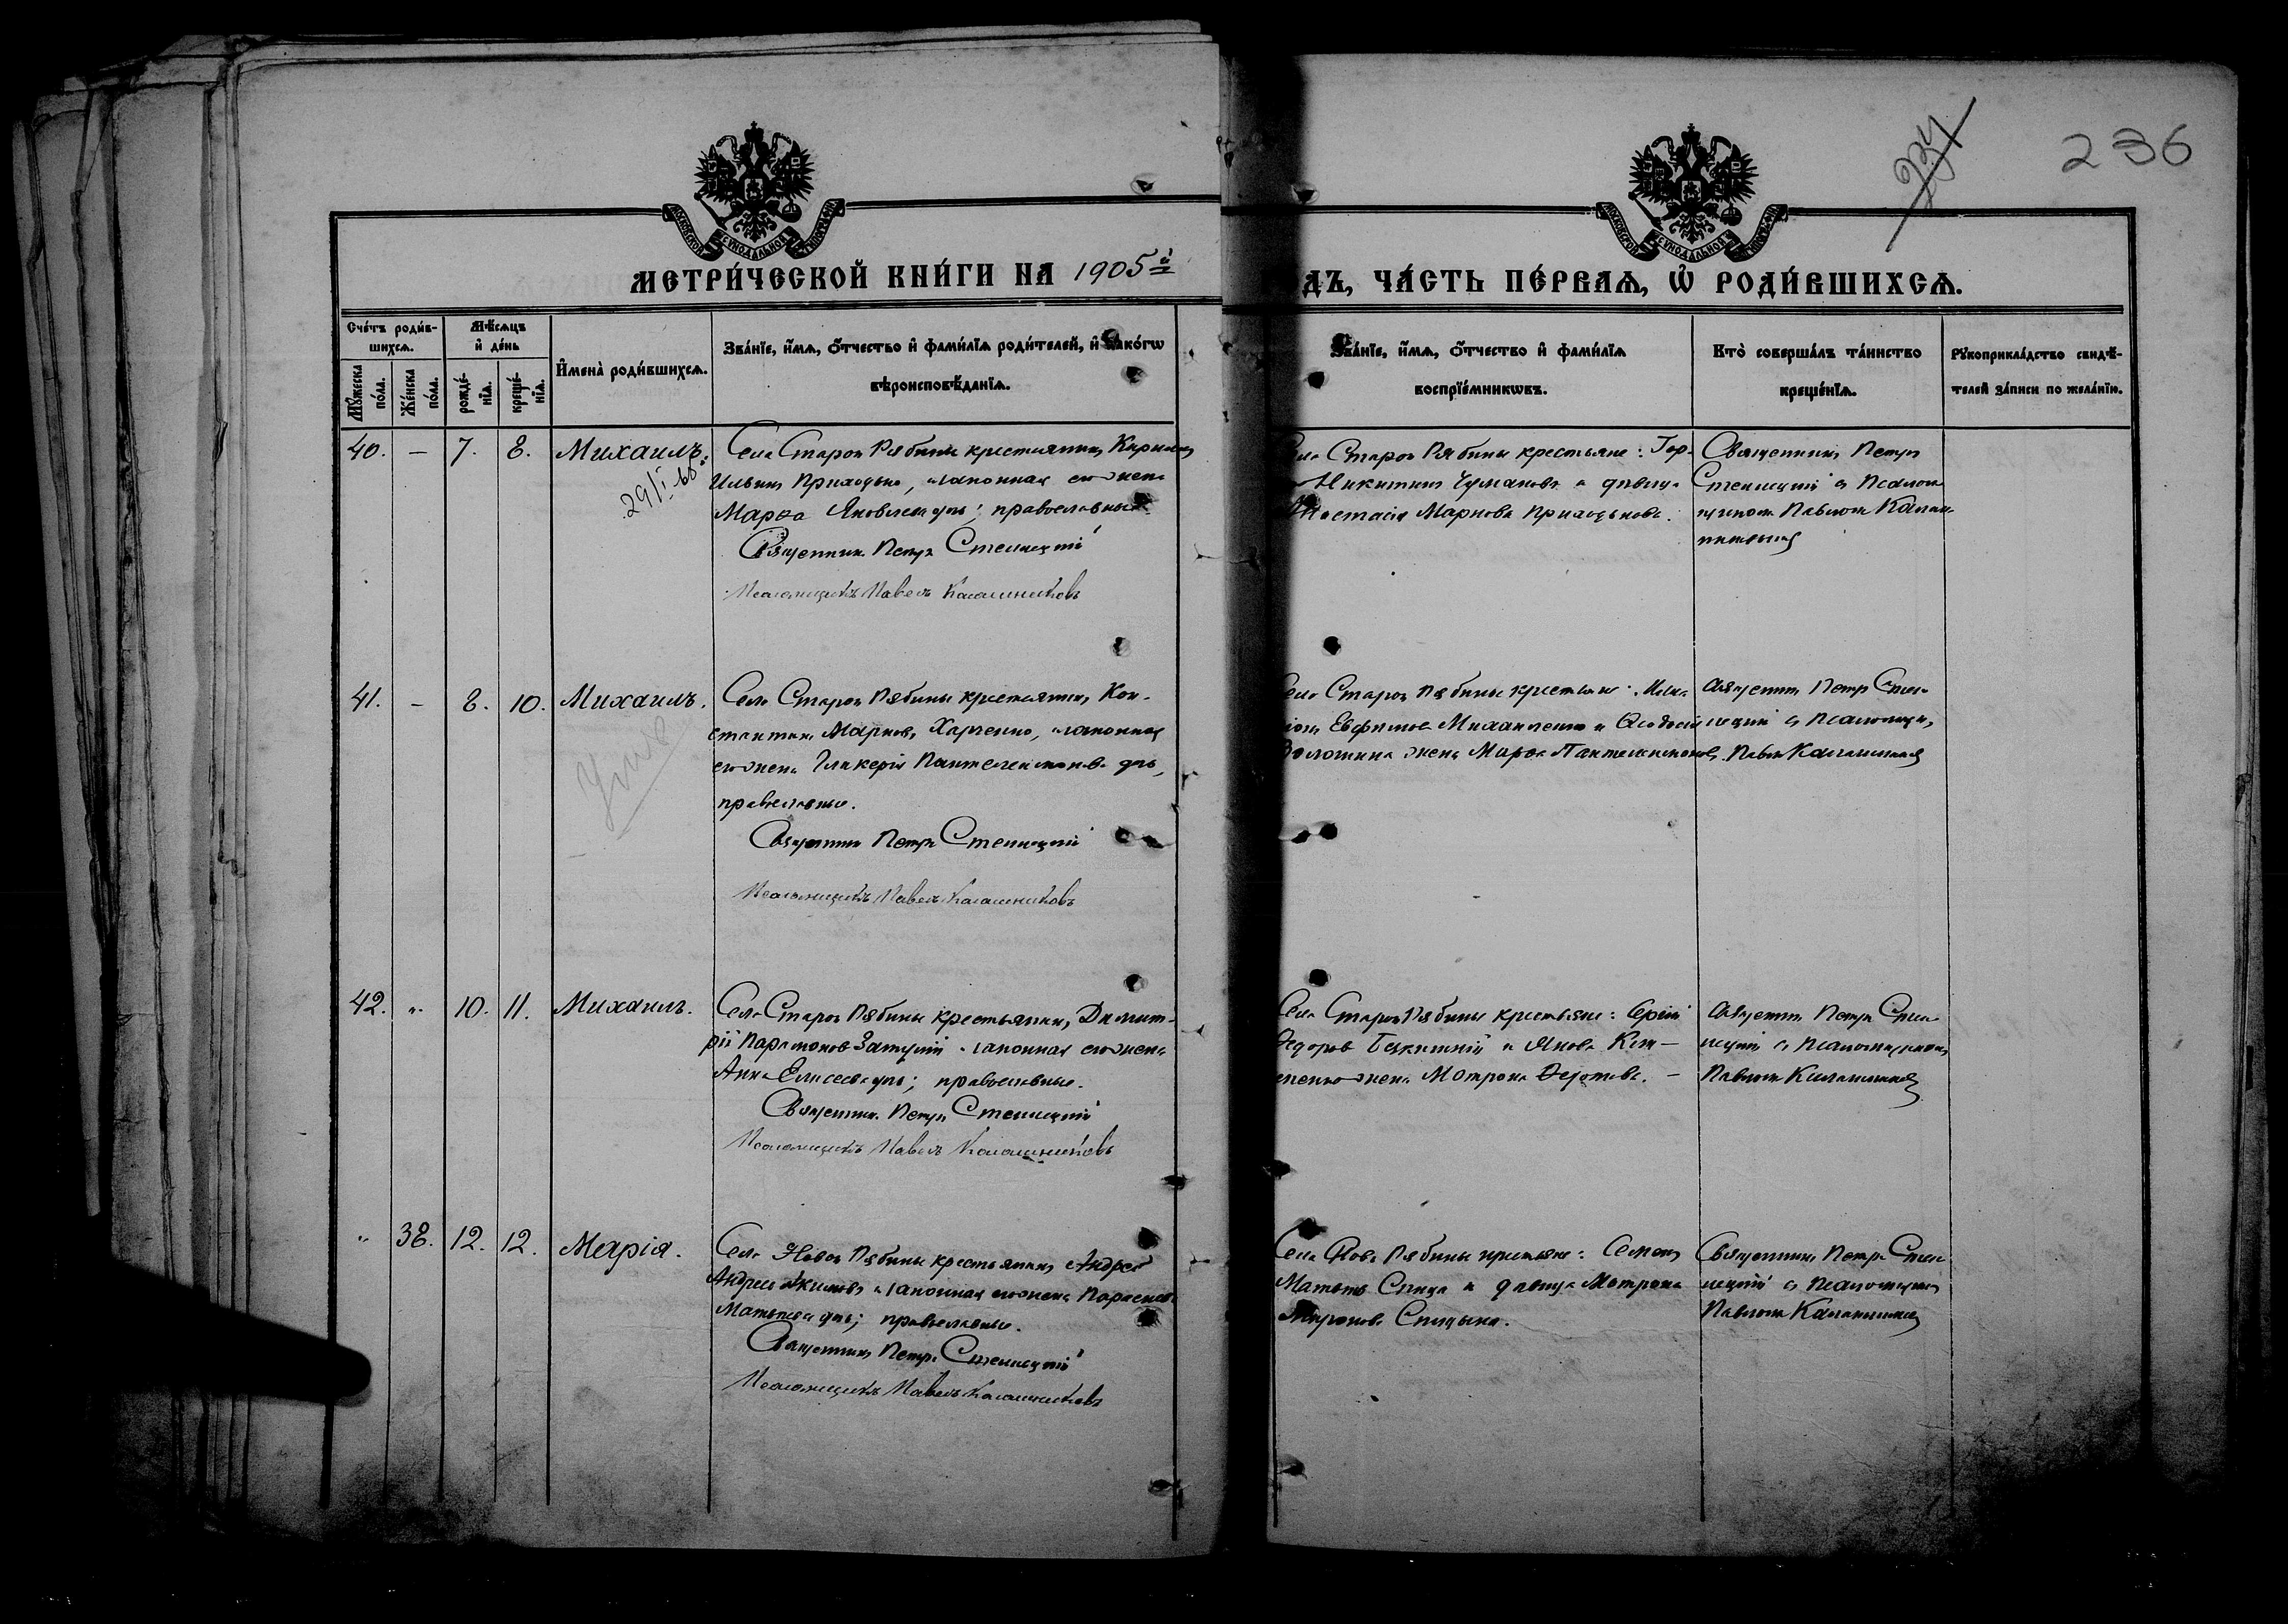 236
234
МЕТРИ́ЧЕСКОЙ КНИ́ГИ НА 1905й
ДЪ, ЧА́СТЬ ПЕ́РВАѦ, Ѡ҆ РОДИ́ВШИХСѦ.
Сче́тъ роди́в-
шихсѧ.
Мѣ́сѧцъ
и҆ де́нь
Мꙋ́жеска
по́ла.
Же́нска
по́ла.
рожде́-
нїѧ.
креще́-
нїѧ.
И҆мена̀ роди́вшихсѧ.
Зва́нїе, и҆́мѧ, ѻ҆́тчество и҆ фами́лїѧ роди́телей, и҆ како́гѡ
вѣроисповѣ́данїѧ.
Зва́нїе, и҆́мѧ, ѻ҆́тчество и҆ фами́лїѧ
воспрїе́мникѡвъ.
Кто̀ соверша́лъ та́инство
креще́нїѧ.
Рꙋкоприкла́дство свидѣ́-
телей за́писи по жела́нїю.
40. — 7. 8. Михаилъ.
29/I 66
Села Старой Рябины крестьянинъ Кирилъ
Ильинъ Приходько, и законная его жена
Марѳа Яковлева дочь; православные.
Священникъ Петръ Стеллецкій
Псаломщикъ Павелъ Калашниковъ
Села Старой Рябины крестьяне:
Никитинъ Чумаковъ и дѣвица
Анастасія Маркова Приходькова.
Священникъ Петръ
Стеллецкій съ Псалом-
щикомъ Павломъ Калаш-
никовымъ
41. — 8. 10. Михаилъ.
Села Старой Рябины крестьянинъ Кон-
стантинъ Марковъ Харченко, и законная
его жена Гликерія Пантелеимонова дочь,
православные.
Священникъ Петръ Стеллецкій
Псаломщикъ Павелъ Калашниковъ
Села Старой Рябины крестьяне:
Евфимовъ Михайленко и Ѳеодосія
Волошина жена Марѳа Пантелеимонова.
Священникъ Петръ Стел-
лецкій съ Псаломщик.
Павл. Калашников
42. „ 10. 11. Михаилъ.
Села Старой Рябины крестьянинъ Димит-
рій Парамоновъ и законная его жена
Анна Елисеева дочь; православные.
Священникъ Петръ Стеллецкій
Псаломщикъ Павелъ Калашниковъ
Села Старой Рябины крестьяне: Сергій
Ѳедоровъ и Якова
жена Матрона Ѳедотова. —
Священникъ Петръ Стел-
лецкій съ Псаломщикомъ
Павломъ Калашников
„ 38. 12. 12. Марія.
Села Новой Рябины крестьянинъ Андрей
Андреевъ Акимовъ и законная его жена Параскева
Матѳеева дочь; православные.
Священникъ Петръ Стеллецкій
Псаломщикъ Павелъ Калашниковъ
Села Новой Рябины крестьяне: Семенъ
Матѳеевъ Спица и дѣвица Матрона
Миронова Спицына.
Священникъ Петръ Стел-
лецкій съ Псаломщикомъ
Павломъ Калашников